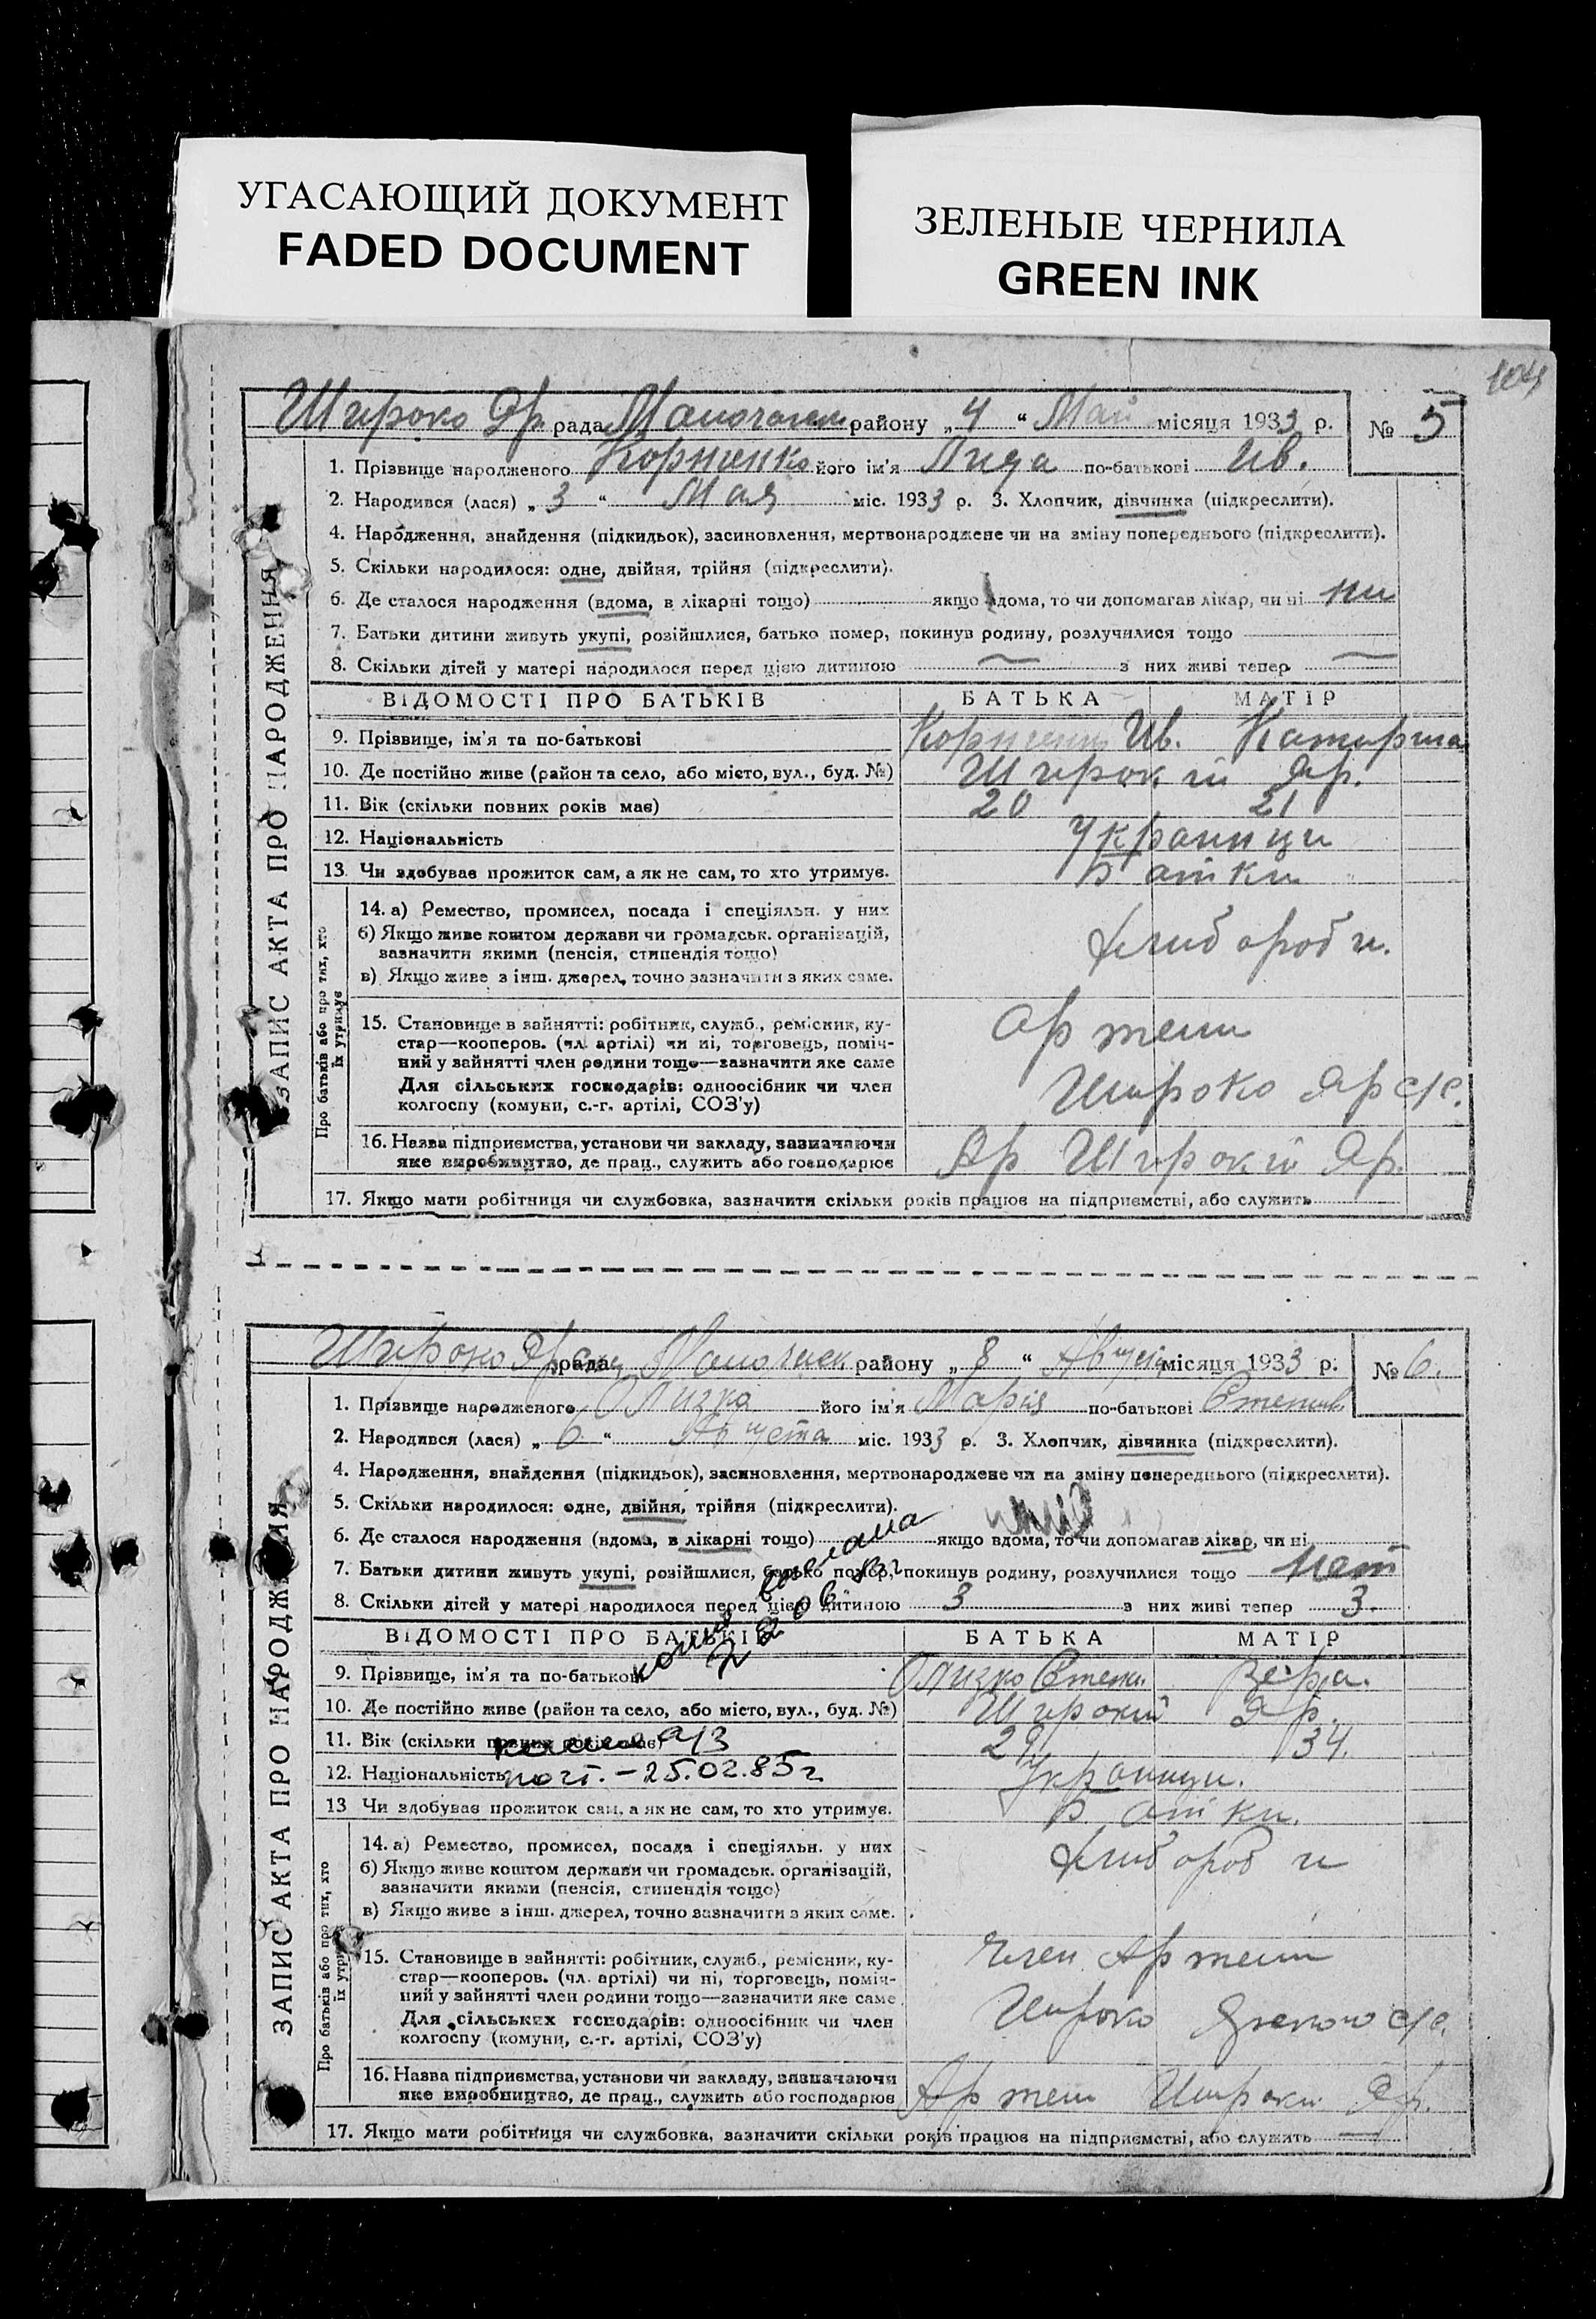 УГАСАЮЩИЙ ДОКУМЕНТ
FADED DOCUMENT
ЗЕЛЕНЫЕ ЧЕРНИЛА
GREEN INK
104
ЗАПИС АКТА ПРО НАРОДЖЕННЯ
Широко Яр. рада району „ 4 “ Май місяця 1933 р.
№ 5
1. Прізвище народженого його ім'я Лида по-батькові Ив.
2. Народився (лася) „ 3 “ Мая міс. 1933 р. 3. Хлопчик, дівчинка (підкреслити).
4. Народження, знайдення (підкидьок), засиновлення, мертвонароджене чи на зміну попереднього (підкреслити).
5. Скільки народилося: одне, двійня, трійня (підкреслити).
6. Де сталося народження (вдома, в лікарні тощо) якщо вдома, то чи допомагав лікар, чи ні ни
7. Батьки дитини живуть укупі, розійшлися, батько помер, покинув родину, розлучилися тощо
8. Скільки дітей у матері народилося перед цією дитиною — з них живі тепер —
ВІДОМОСТІ ПРО БАТЬКІВ БАТЬКА МАТІР
9. Прізвище, ім'я та по-батькові Ив.
10. Де постійно живе (район та село, або місто, вул., буд. №) Широкій Яр.
11. Вік (скільки повних років має) 20 21
12. Національність Украинци
13. Чи здобуває прожиток сам, а як не сам, то хто утримує. Батки
Про батьків або про тих, хто їх утримує
14. а) Ремество, промисел, посада і спеціяльн. у них
б) Якщо живе коштом держави чи громадськ. організацій,
зазначити якими (пенсія, стипендія тощо)
в) Якщо живе з інш. джерел, точно зазначити з яких саме.
Хлибороби.
15. Становище в зайнятті: робітник, служб., ремісник, ку-
стар—кооперов. (чл. артілі) чи ні, торговець, поміч-
ний у зайнятті член родини тощо—зазначити яке саме
Для сільських господарів: одноосібник чи член
колгоспу (комуни, с.-г. артілі, СОЗ'у)
Артели
Широко Яр с/с.
16. Назва підприємства, установи чи закладу, зазначаючи
яке виробництво, де прац., служить або господарює
Ар Широкій Яр.
17. Якщо мати робітниця чи службовка, зазначити скільки років працює на підприємстві, або служить
ЗАПИС АКТА ПРО НАРОДЖЕННЯ
Широко Яр рада району „ 8 “ Августа місяця 1933 р.
№ 6.
1. Прізвище народженого Олизко його ім'я Марія по-батькові
2. Народився (лася) „ 6 “ Августа міс. 1933 р. 3. Хлопчик, дівчинка (підкреслити).
4. Народження, знайдення (підкидьок), засиновлення, мертвонароджене чи на зміну попереднього (підкреслити).
5. Скільки народилося: одне, двійня, трійня (підкреслити).
6. Де сталося народження (вдома, в лікарні тощо) якщо вдома, то чи допомагав лікар, чи ні
7. Батьки дитини живуть укупі, розійшлися, батько помер, покинув родину, розлучилися тощо нет
8. Скільки дітей у матері народилося перед цією дитиною 3 з них живі тепер 3.
ВІДОМОСТІ ПРО БАТЬКІВ БАТЬКА МАТІР
9. Прізвище, ім'я та по-батькові Олизко Степ. Вера.
10. Де постійно живе (район та село, або місто, вул., буд. №) Широкій Яр.
11. Вік (скільки повних років має) 29 34.
12. Національність Украинци.
– 25.02.85 г.
13 Чи здобуває прожиток сам, а як не сам, то хто утримує. Батки.
Про батьків або про тих, хто їх утримує
14. а) Ремество, промисел, посада і спеціяльн. у них
б) Якщо живе коштом держави чи громадськ. організацій,
зазначити якими (пенсія, стипендія тощо)
в) Якщо живе з інш. джерел, точно зазначити з яких саме.
Хлибороби
15. Становище в зайнятті: робітник, служб., ремісник, ку-
стар—кооперов. (чл. артілі) чи ні, торговець, поміч-
ний у зайнятті член родини тощо—зазначити яке саме
Для сільських господарів: одноосібник чи член
колгоспу (комуни, с.-г. артілі, СОЗ'у)
Член Артели
Широко с/с.
16. Назва підприємства, установи чи закладу, зазначаючи
яке виробництво, де прац., служить або господарює
Артели Широки Яр.
17. Якщо мати робітниця чи службовка, зазначити скільки років працює на підприємстві, або служить —